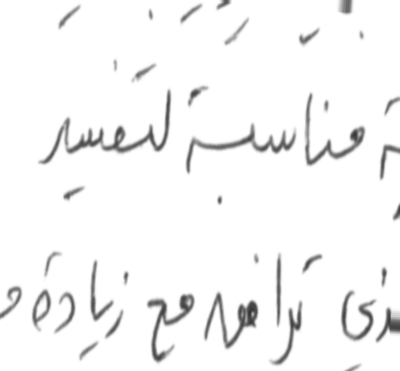 مناسبة لتفسير
ترافق مع زيادة